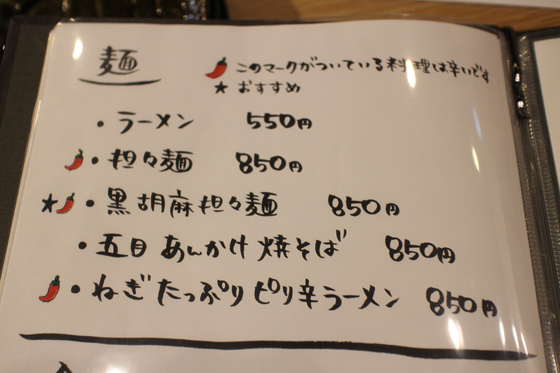 麺
このマークがついている料理は辛いです
★おすすめ
・ラーメン 550円
・担々麺 850円
★・黒胡麻担々麺 850円
・五目あんかけ焼そば 850円
・ねぎたっぷりピリ辛ラーメン 850円